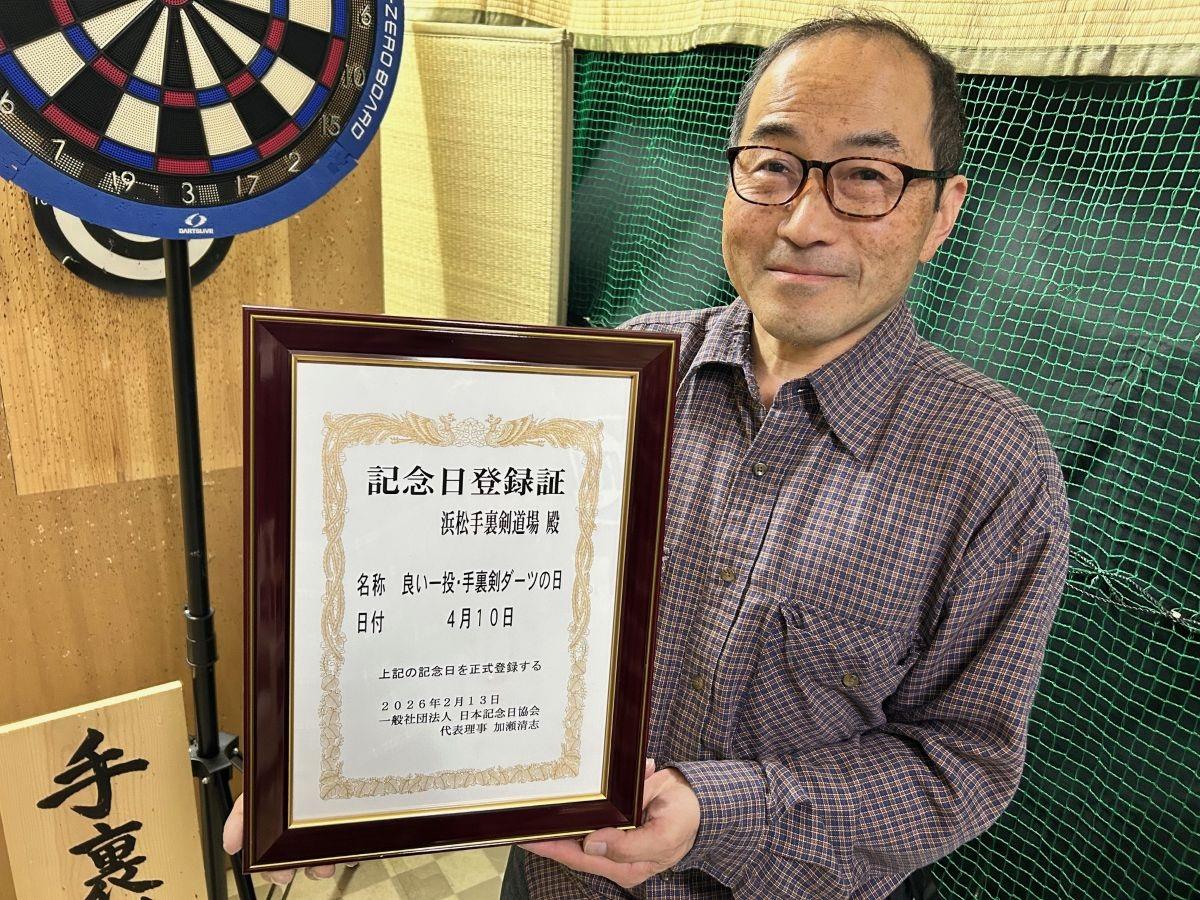 -ZERO BOARD
6
10
15
2
17
3
19
7
16
DARTSLIVE
記念日登録証
浜松手裏剣道場 殿
名称 良い一投・手裏剣ダーツの日
日付 4月10日
上記の記念日を正式登録する
2026年2月13日
一般社団法人 日本記念日協会
代表理事 加瀬清志
手裏